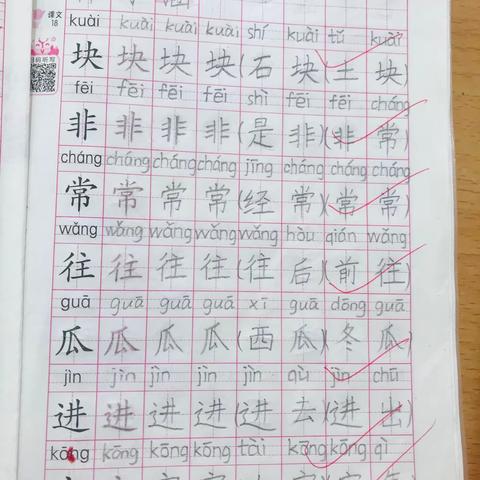 课文
18
扫码听写
kuài kuài kuài kuài shí kuài tǔ kuài
块 块 块 块(石 块)(土 块)
fēi fēi fēi fēi shì fēi fēi cháng
非 非 非 非(是 非)(非 常)
cháng cháng cháng cháng jīng cháng cháng cháng
常 常 常 常(经 常)(常 常)
wǎng wǎng wǎng wǎng wǎng hòu qián wǎng
往 往 往 往(往 后)(前 往)
guā guā guā guā xī guā dōng guā
瓜 瓜 瓜 瓜(西 瓜)(冬 瓜)
jìn jìn jìn jìn jìn qù jìn chū
进 进 进 进(进 去)(进 出)
kōng kōng kōng kōng tài kōng kōng qì